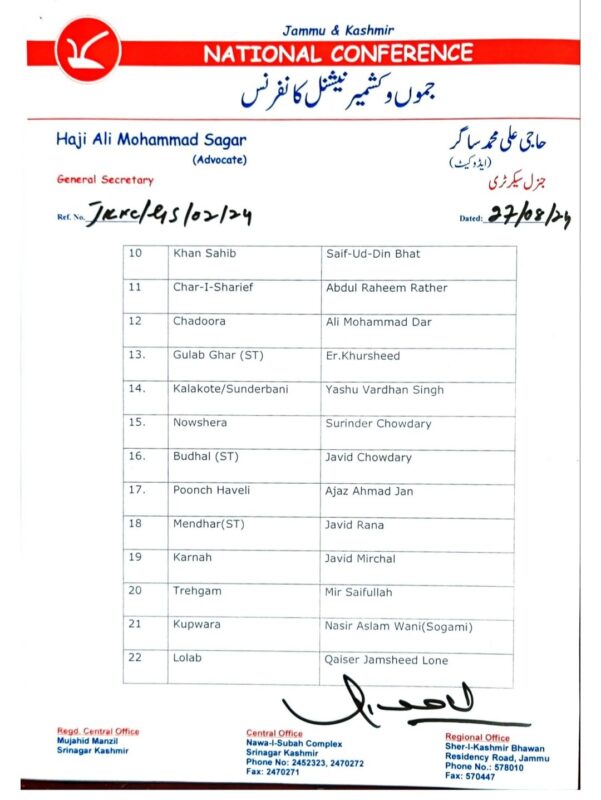 Jammu & Kashmir
NATIONAL CONFERENCE
جموں و کشمیر نیشنل کانفرنس
Haji Ali Mohammad Sagar
(Advocate)
General Secretary
حاجی علی محمد ساگر
(ایڈوکیٹ)
جنرل سیکرٹری
Ref. No. JKNC/GS/02/24
Dated: 27/08/24
10 Khan Sahib Saif-Ud-Din Bhat
11 Char-I-Sharief Abdul Raheem Rather
12 Chadoora Ali Mohammad Dar
13. Gulab Ghar (ST) Er.Khursheed
14. Kalakote/Sunderbani Yashu Vardhan Singh
15. Nowshera Surinder Chowdary
16. Budhal (ST) Javid Chowdary
17. Poonch Haveli Ajaz Ahmad Jan
18 Mendhar(ST) Javid Rana
19 Karnah Javid Mirchal
20 Trehgam Mir Saifullah
21 Kupwara Nasir Aslam Wani(Sogami)
22 Lolab Qaiser Jamsheed Lone
Regd. Central Office
Mujahid Manzil
Srinagar Kashmir
Central Office
Nawa-I-Subah Complex
Srinagar Kashmir
Phone No: 2452323, 2470272
Fax: 2470271
Regional Office
Sher-I-Kashmir Bhawan
Residency Road, Jammu
Phone No.: 578010
Fax: 570447